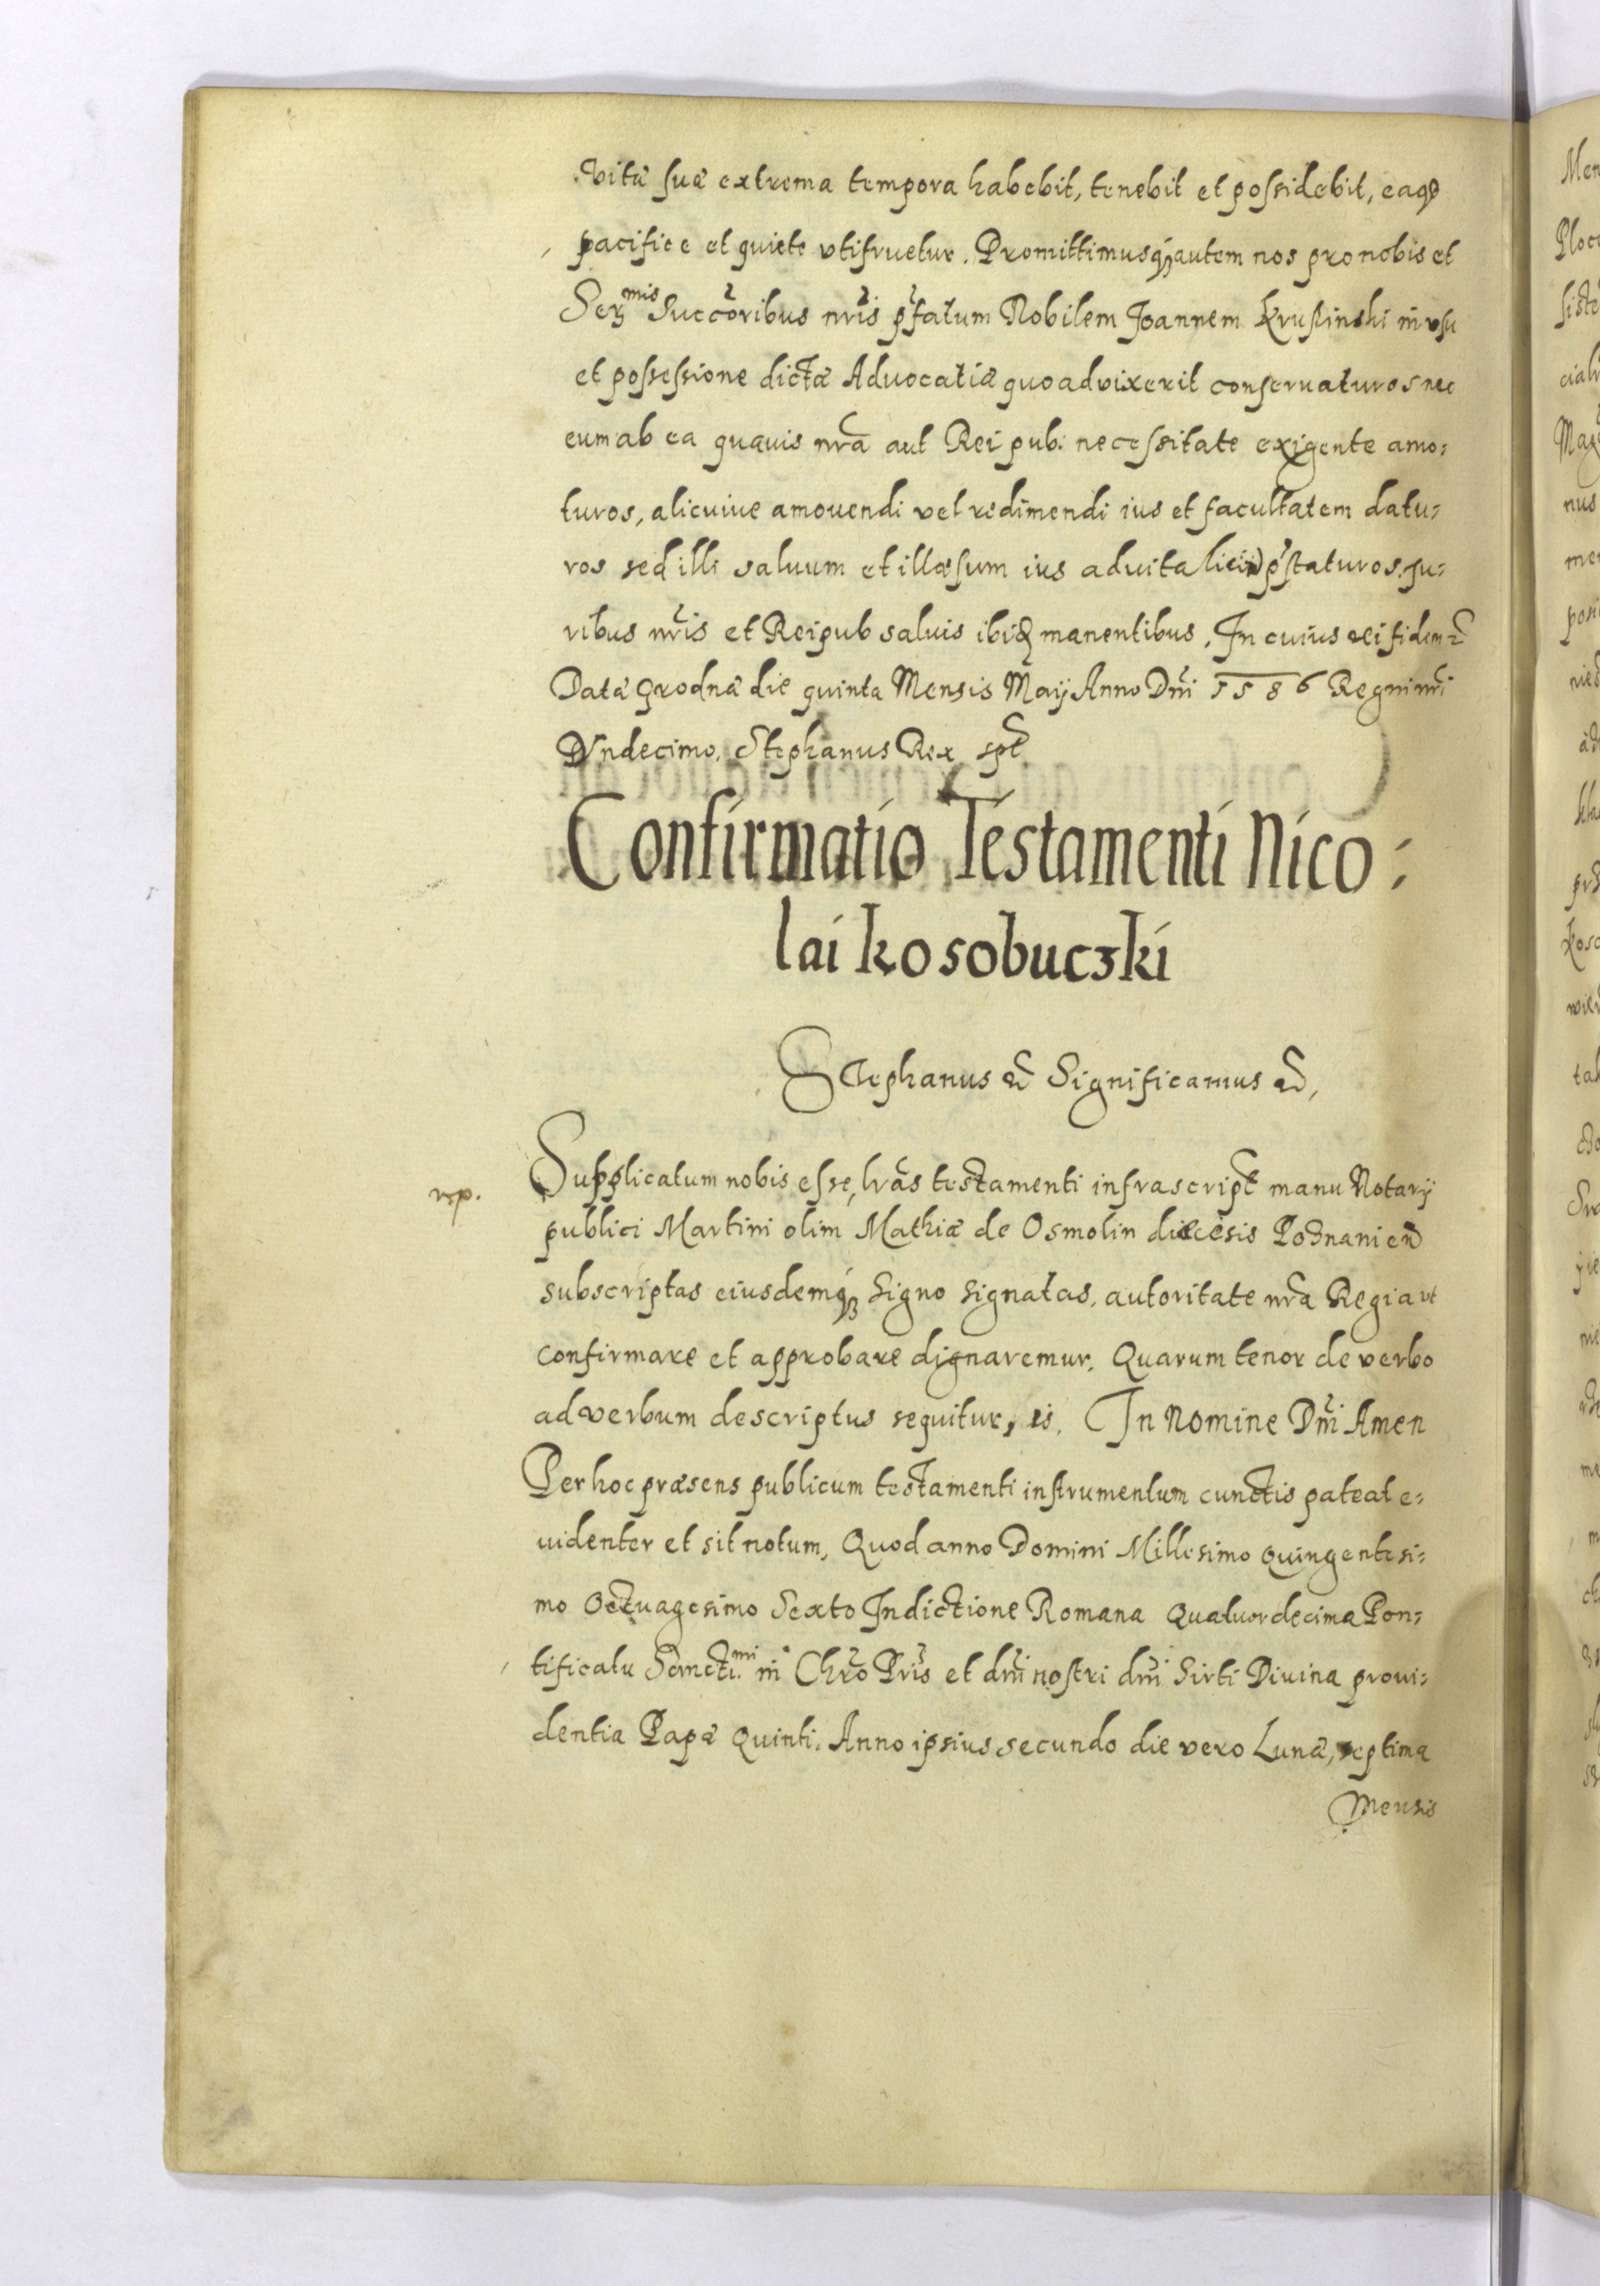 vitæ suæ extrema tempora habebit, tenebit et possidebit, eaqȝ
pacifice et quiete vtifruetur. Promittimusqȝ autem nos pro nobis et
Serᵐⁱˢ Succoribus nris pfatum Nobilem Joannem Kruslinski in vsu
et possessione dictæ Aduocatiæ quoad vixerit conseruaturos nec
eum ab ea quauis nra aut Rei pub. necessitate exigente amo:
turos, alicuiue amouendi vel redimendi ius et facultatem datu:
ros sed illi saluum et illæsum ius aduitalicii pstaturos. Ju:
ribus nris et Reipub saluis ibiqȝ manentibus. In cuius rei fidem
Datæ Grodnæ die quinta Mensis Maij Anno Dni 1586 Regni nri
Vndecimo. Stephanus Rex spt
Confirmatio Testamenti Nico:
lai Kosobuczki
Stephanus etc Significamus etc,
Supplicatum nobis esse, lras testamenti infrascript manu Notarij
rp.
publici Martini olim Mathiæ de Osmolin diecesis Posnanien
subscriptas eiusdemqȝ signo signatas, autoritate nra Regia vt
confirmare et approbare dignaremur. Quarum tenor de verbo
ad verbum descriptus sequitur, is. In Nomine Dni Amen
Per hoc præsens publicum testamenti instrumentum cunctis pateat e:
uidenter et sit notum, Quod anno Domini Millesimo Quingentesi:
mo Octuagesimo Sexto Indictione Romana Quatuordecima Pon:
tificatu Sanctiᵐⁱ in Chro Pris et dni nostri dni Sixti Diuina proui:
dentia Papæ Quinti. Anno ipsius secundo die vero Lunæ, septima
Mensis